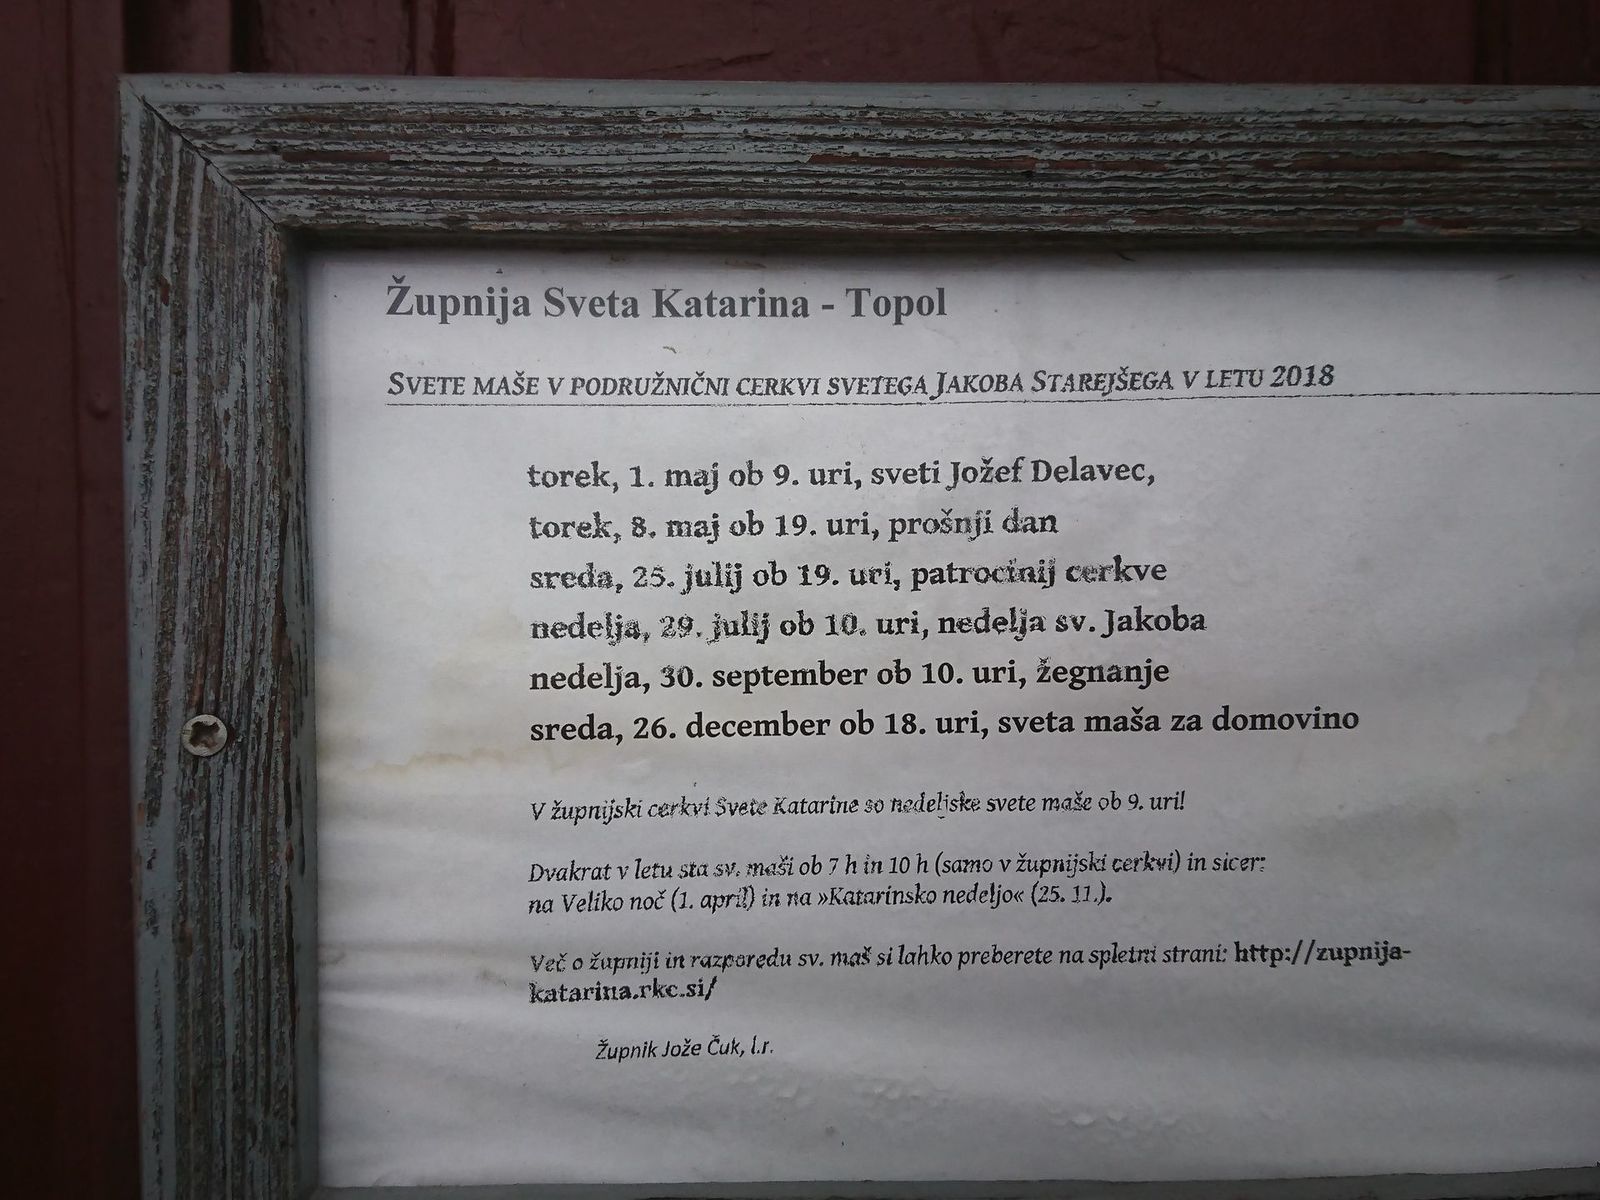 Župnija Sveta Katarina - Topol
SVETE MAŠE V PODRUŽNIČNI CERKVI SVETEGA JAKOBA STAREJŠEGA V LETU 2018
torek, 1. maj ob 9. uri, sveti Jožef Delavec,
torek, 8. maj ob 19. uri, prošnji dan
sreda, 25. julij ob 19. uri, patrocinij cerkve
nedelja, 29. julij ob 10. uri, nedelja sv. Jakoba
nedelja, 30. september ob 10. uri, žegnanje
sreda, 26. december ob 18. uri, sveta maša za domovino
V župnijski cerkvi Svete Katarine so nedeljske svete maše ob 9. uri!
Dvakrat v letu sta sv. maši ob 7 h in 10 h (samo v župnijski cerkvi) in sicer:
na Veliko noč (1. april) in na »Katarinsko nedeljo« (25. 11.).
Več o župniji in razporedu sv. maš si lahko preberete na spletni strani: http://zupnija-
katarina.rkc.si/
Župnik Jože Čuk, l.r.